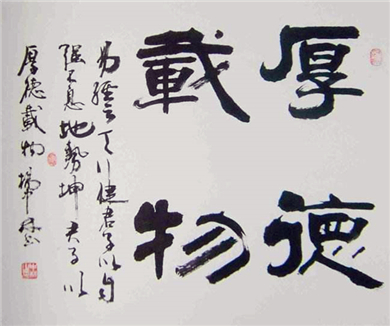 厚德
載物
易經云天行健君子以自
強不息地勢坤君子以
厚德載物